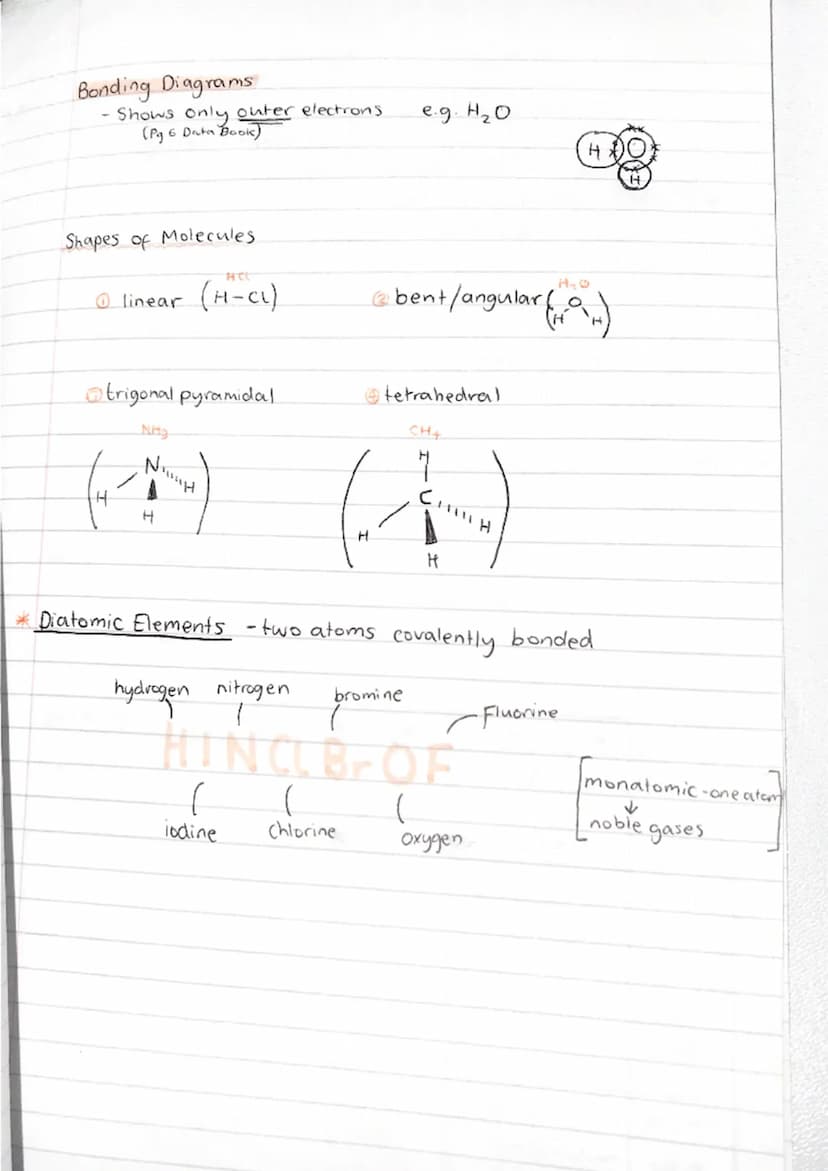 Bonding Diagrams
- Shows only outer electrons e.g. H₂O
(Pg 6 Data Book)
H O
H
Shapes of Molecules
HCl H₂O
① linear (H-Cl) ② bent/angular ( O )
H H
③ trigonal pyramidal ④ tetrahedral
NH₃ CH₄
H
N H C
H H
H H H
* Diatomic Elements - two atoms covalently bonded
hydrogen nitrogen bromine
Fluorine
HINClBrOF
iodine Chlorine oxygen
[monatomic - one atom
↓
noble gases]